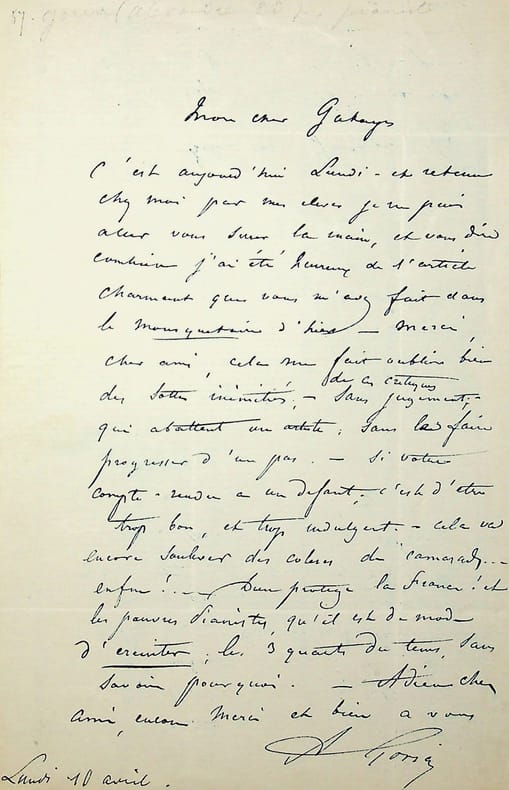 57. goria (alexandre
Mon cher Gatayes
C'est aujourd'hui Lundi - et retenu
chez moi par mes eleves je ne puis
aller vous serrer la main, et vous dire
combien j'ai été heureux de l'article
charmant que vous m'avez fait dans
le mousquetaire d'hier - merci,
cher ami, cela me fait oublier bien
des sottes inimitiés, - de ces critiques sans jugement -
qui abattent un artiste, sans le faire
progresser d'un pas. - Si votre
compte-rendu a un defaut, c'est d'etre
trop bon, et trop indulgent. - cela va
encore soulever des coleres de "camarades...
enfin! - Dieu protege la France! et
les pauvres Pianistes, qu'il est de mode
d'ereinter, les 3 quarts du tems, sans
savoir pourquoi. - Adieu cher
ami, encore merci et bien a vous
A Goria
Lundi 10 avril.